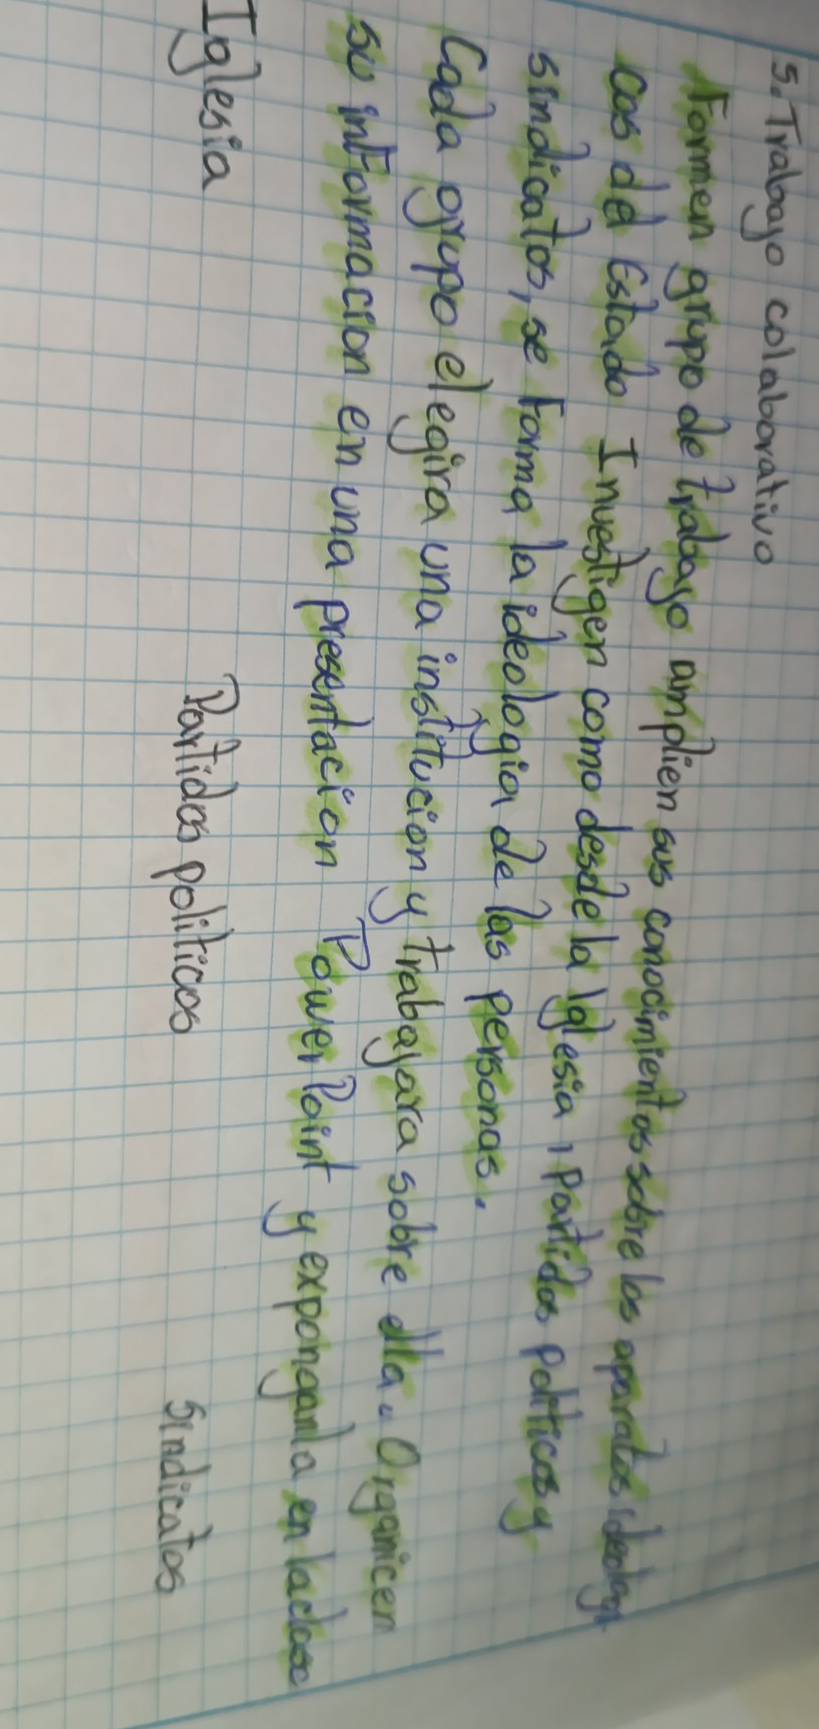 5. Trabajo colaborativo
Formen grupo de trabajo amplien sus conocimientos sobre los aparatos ideologi
cos del Estado Investigen como desde la Iglesia, Partidos politicos y
sindicatos, se forma la ideologia de las personas.
Cada grupo elegira una institucion y trabajara sobre ella. Organicen
su informacion en una presentacion Power Point y expongan la en la clase
Iglesia Partidos politicos Sindicatos